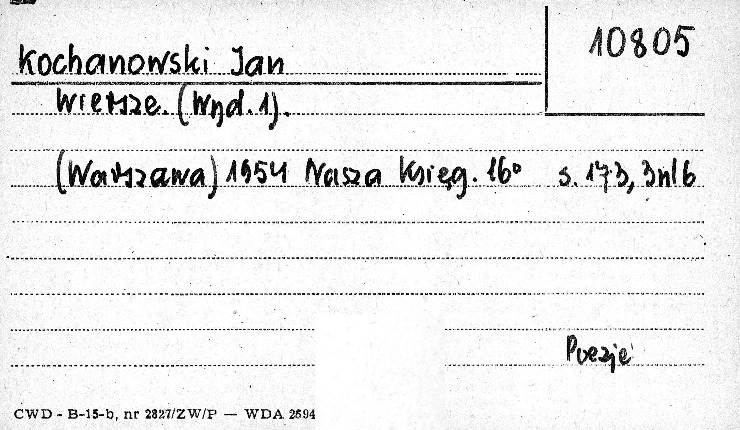 10805
Kochanowski Jan
Wiersze. (Wyd. 1).
(Warszawa) 1954 Nasza Księg. 16° s. 173, 3nlb
Poezje
CWD - B-15-b, nr 2827/ZW/P — WDA 2594